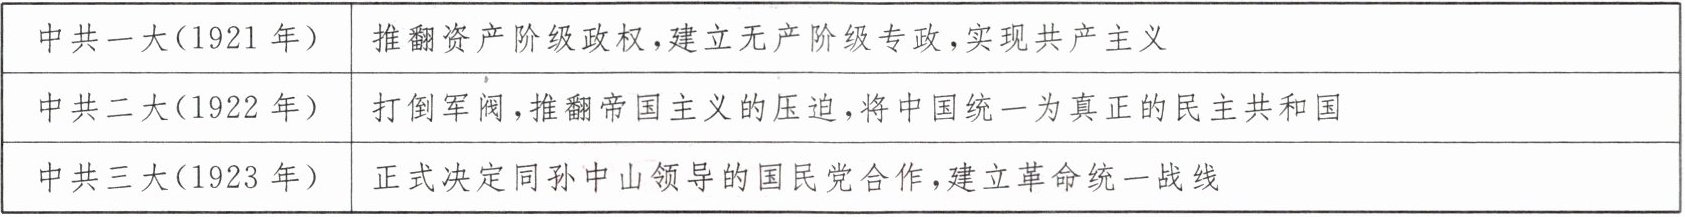 中共一大(1921年) 推翻资产阶级政权,建立无产阶级专政,实现共产主义
中共二大(1922年) 打倒军阀,推翻帝国主义的压迫,将中国统一为真正的民主共和国
中共三大(1923年) 正式决定同孙中山领导的国民党合作,建立革命统一战线